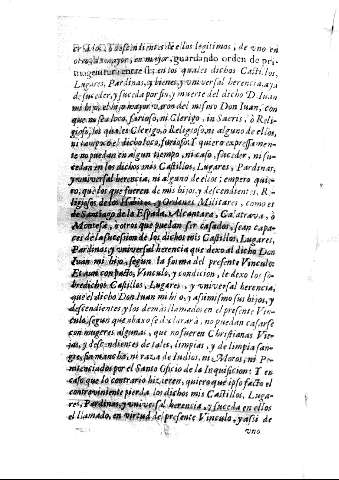 er sidos, ò descendientes de ellos legitimos, de vno en
otro, de mayor, en mayor, guardando orden de pri-
mogenitura entre si; en los quales dichos Castillos,
Lugares, Pardinas, y bienes, y vniversal herencia, aya
de suceder, y suceda por fin, y muerte del dicho D. Iuan
mi hijo, el hijo mayor varon del mismo Don Iuan, con
que no sea loco, furioso, ni Clerigo, in Sacris, ò Reli-
gioso, los quales Clerigo, ò Religioso, ni alguno de ellos,
ni tampoco el dicho loco, furioso, Y quiero expressamen-
te no puedan en algun tiempo, ni caso, suceder, ni su-
cedan en los dichos mis Castillos, Lugares, Pardinas,
y vniversal herencia, ni alguno de ellos; tempero quie-
ro, que los que fueren de mis hijos, y descendientes, Re-
ligiosos de los Habitos, y Ordenes Militares, como es
de Santiago de la Espada, Alcantara, Calatrava, ò
Montesa, v otros que puedan ser casados, sean capa-
ces de la sucesion de los dichos mis Castillos, Lugares,
Pardinas, y vniversal herencia que dexo al dicho Don
Iuan mi hijo, segun la forma del presente Vinculo:
Et aun con pacto, Vinculo, y condicion, le dexo los so-
bredichos Castillos, Lugares, y vniversal herencia,
que el dicho Don Iuan mi hijo, y assimismo sus hijos, y
descendientes y los demas llamados en el presente Vin-
culo, segun que abaxo se declararà, no puedan casarse
con mugeres algunas, que no fueren Christianas Vie-
jas, y descendientes de tales, limpias, y de limpia san-
gre, sin mancha, ni raza de Iudios, ni Moros, ni Pe-
nitenciados por el Santo Oficio de la Inquisicion: Y en
caso que lo contrario hizieren, quiero que ipso facto el
contraviniente pierda los dichos mis Castillos, Luga-
res, Pardinas, y vniversal herencia, y suceda en ellos
el llamado, en virtud del presente Vinculo, y assi de
vno